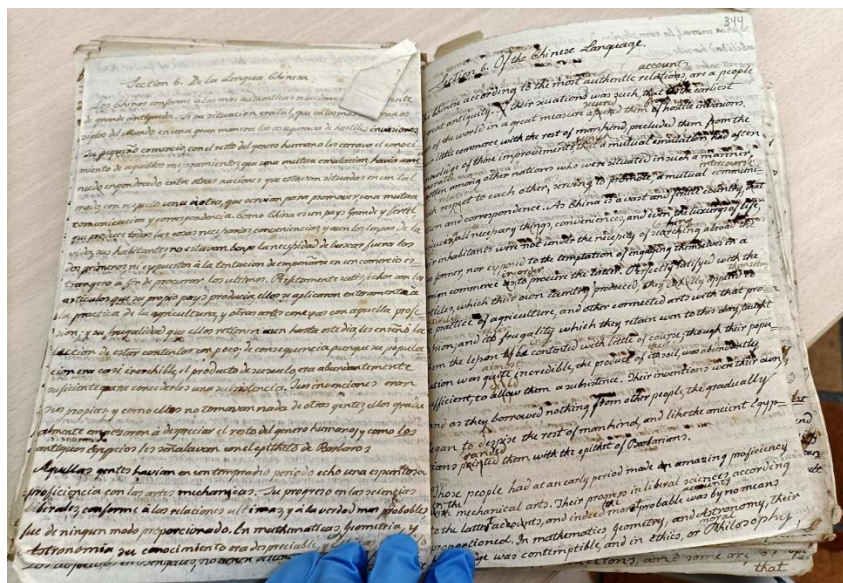 Section 6. De la Lengua Chinesa.
Los Chinos conforme a las mas authenticas relaciones
de grande antiguedad. Si su situacion era tal, que en los
siglos del Mundo en una gran manera los asegurava de hostiles invasiones.
Su pequeño comercio con el resto del genero humano los cerrava el conoci
miento de aquellos mejoramientos que una mutua emulacion havia ame
nudo engendrado entre otras naciones que estavan situadas en un tal
modo con respeto una à otra, que servian para promover una mutua
comunicacion y correspondencia. Como China es un pays grande y fertil,
qui produce todas las cosas necesarias, conveniencias, y aun los luxos de la
vida, sus habitantes no estavan baxo la necesidad de buscar fuera los
dos primeros ni expuestos à la tentacion de empeñarse en un comercio es
trangero à fin de procurar los ultimos. Perfectamente satisfechos con los
articulos que su propio pays producia, ellos se aplicaron enteramente à
la practica de la agricultura, y otras artes conexas con aquella profe
sion, y su frugalidad que ellos retienen aun hasta este dia les enseñò la
leccion de estar contentos con poco: de consequencia, aunque su popula
cion era casi increhible, el producto de su suelo era abundantemente
suficiente para concederles una subsistencia. Sus invenciones eran
sus propias, y como ellos no tomavan nada de otras gentes, ellos gradu
almente empezaron à despreciar el resto del genero humano, y como los
antiguos Egipcios los señalavan con el epitheto de Barbaros
Aquellas gentes havian en un temprano periodo echo una espantosa
proficiencia con las artes mechanicas. Su progreso en las sciencias
liberales, conforme à las relaciones ultimas, y à la verdad mas probables
fue de ningun modo proporcionado. En mathematicas, Geometria, y
Astronomia su conocimiento era despreciable, y
344
Section 6. Of the Chinese Language.
account
Chinese according to the most authentic relations, are a people
great antiquity. Their situation was such, that in the earliest
secured
of the world in a great measure them of hostile invasions.
little commerce, with the rest of mankind, precluded them from the
knowledge of those improvements that a mutual emulation had often
among other nations who were situated in such a manner,
relation intercourse
with respect to each other, serving to promote a mutual communi-
and correspondence. As China is a vast and fertile country, that
all necessary things, conveniences, and even the luxurys of life,
inhabitants were not under the necessity of searching abroad
former, nor exposed to the temptation of engaging themselves in a
in order
foreign commerce to procure the latter. Perfectly satisfyed with the
articles, which their own country produced, they wholly applied to
practice of agriculture, and other connected arts with that pro-
and its frugality which they retain even to this day, taught
them the lesson to be contented with little of course; though their popu-
almost
was quite incredible, the produce of its soil, was abundantly
sufficient, to allow them a subsistence. Their inventions were their own;
and as they borrowed nothing from other people, the gradually
began to despize the rest of mankind, and like the ancient Egyp-
branded
them with the epithet of Barbarians.
Those people had at an early period made an amazing proficiency
in the
mechanical arts. Their progress in liberal sciences, according
to the latter accounts, and indeed more probable was by no means
proportioned. In mathematics, geometry, and Astronomy, their
was contemptible, and in ethics, or Philosophy,
that